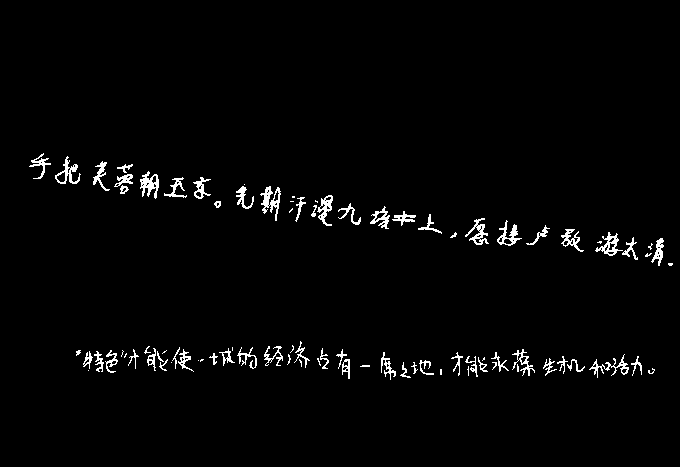 手把芙蓉朝玉京。先期汗漫九垓上,愿接卢敖游太清.
"特色"才能使一城的经济占有一席之地,才能永葆生机和活力。